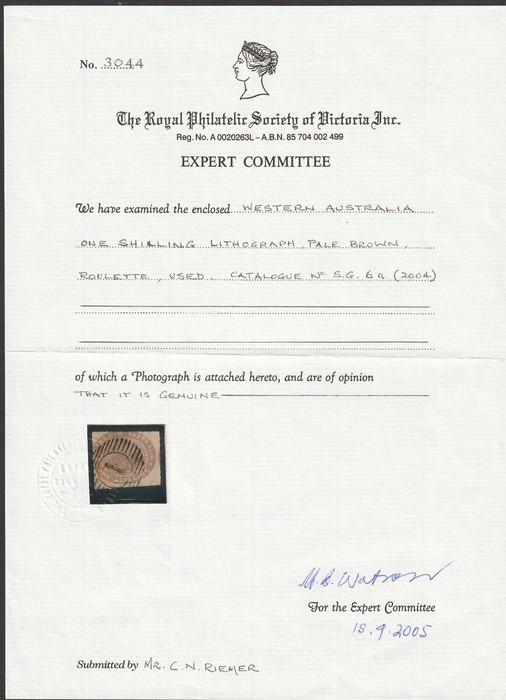 No. 3044
The Royal Philatelic Society of Victoria Inc.
Reg. No. A 0020263L – A.B.N. 85 704 002 499
EXPERT COMMITTEE
We have examined the enclosed WESTERN AUSTRALIA
ONE SHILLING LITHOGRAPH, PALE BROWN,
ROULETTE, USED. CATALOGUE No S.G. 6a (2004)
of which a Photograph is attached hereto, and are of opinion
THAT IT IS GENUINE
M. B. Watson
For the Expert Committee
15.9.2005
Submitted by MR. C. N. RIEMER